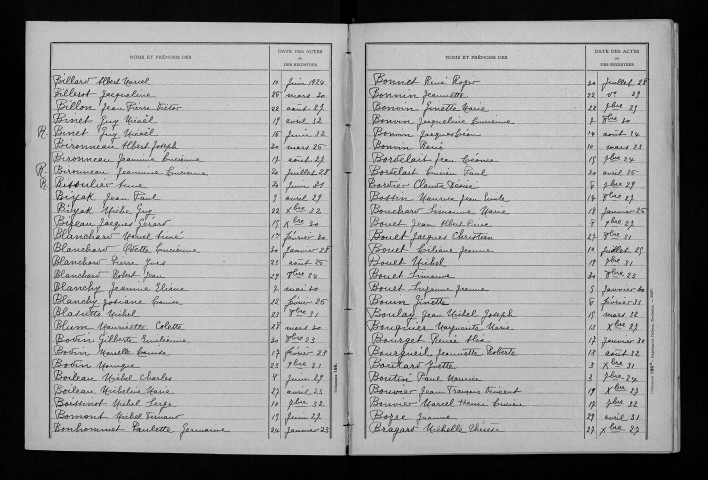 NOMS ET PRÉNOMS DES
DATE DES ACTES
ou
DES REGISTRES
Billard Albert Marcel 10 Juin 1924
Billerot Jacqueline 26 mars 30
Billon Jean Pierre Victor 22 août 27
Binet Guy Michel 19 avril 32
R. Binet Guy Michel 16 Juin 32
Bironneau Albert Joseph 20 mars 26
Bironneau Jeannine Lucienne 17 août 27
R. Bironneau Jeannine Lucienne 20 Juillet 28
R. 20 Juin 21
Jean Paul 9 avril 29
Guy 22 Xbre 32
Jacques Gérard 15 Xbre 30
Blanchard Marcel 17 février 20
Blanchard Odette Lucienne 30 Janvier 28
Blanchard Pierre Yves 23 août 26
Blanchard Robert Jean 29 8bre 24
Blanchy Jeannine Eliane 7 mai 20
Blanchy Josiane 12 février 26
Michel 23 8bre 31
Blum Mauricette Colette 28 mars 20
Bobin Gilberte Emilienne 30 8bre 23
Bobin 17 février 23
Bobin Monique 23 9bre 21
Boileau Michel Charles 9 Juin 29
Boileau Micheline Marie 27 avril 23
Michel Serge 10 9bre 32
Bomont Michel Fernand 15 Juin 27
Bonhommet Paulette Germaine 24 Janvier 23
NOMS ET PRÉNOMS DES
DATE DES ACTES
ou
DES REGISTRES
Bonnet René Roger 20 Juillet 28
Bonnin Jeannette 22 dº 29
Bonvin Ginette Marie 22 9bre 29
Bonvin Jacqueline Lucienne 7 8bre 20
Bonvin Jacques 14 août 24
Bonvin René 10 mars 23
Bordelait Jean 15 9bre 24
Bordelait Lucien Paul 20 avril 26
Bordier Claude 8 9bre 29
Bossin Maurice Jean 14 8bre 27
Bouchard Simonne Marie 18 Janvier 26
Bouet Jean Albert René 9 9bre 27
Bouet Jacques Christian 27 8bre 31
Bouet Liliane Jeanne 10 Juillet 29
Bouet Michel 19 9bre 21
Bouet Simonne 30 8bre 23
Bouet Suzanne Jeanne 5 Janvier 20
Bouin Ginette 8 février 31
Boulay Jean Michel Joseph 15 mars 32
Bougnier Marguerite Marie 13 Xbre 27
Bourget Renée 17 Janvier 30
Bourgueil Jeannette Roberte 13 août 32
Yvette 3 Xbre 31
Boutin Paul Maurice 3 9bre 24
Bouvier Jean François Vincent 19 Xbre 27
Bouvier Marcel Henri Lucien 17 9bre 32
Bozec Jeanne 29 avril 31
Bragard Michelle Thérèse 27 Xbre 27